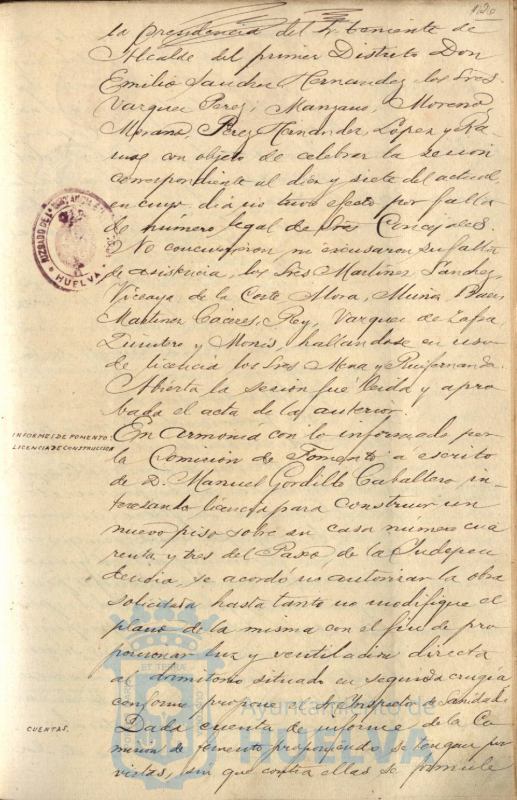 120
la presidencia del Sr. teniente de
Alcalde del primer Distrito Don
Emilio Sanchez Hernandez los Sres.
Vazquez Perez, Manzano, Moreno,
Morano, Perez Hernandez, López y Ra-
mos con objeto de celebrar la sesión
correspondiente al diez y siete del actual,
en cuyo dia no tuvo efecto por falta
de número legal de Sres Concejales.
No concurrieron ni excusaron su falta
de asistencia, los Sres Martinez Sanchez,
Vizcaya, de la Corte Mora, Muñiz, Baez,
Martinez Cazares, Rey, Vazquez de Zafra,
Quintero y Monís, hallándose en uso
de licencia los Sres Mena y Ruifernandez.
Abierta la sesión fué leida y apro-
bada el acta de la anterior.
INFORMES DE FOMENTO:
LICENCIA DE CONSTRUCCION
En armonía con lo informado por
la Comisión de Fomento á escrito
de D. Manuel Gordillo Caballero, in-
teresando licencia para construir un
nuevo piso sobre su casa numero cua
renta y tres del Paseo de la Indepen
dencia, se acordó no autorizar la obra
solicitada hasta tanto no modifique el
plano de la misma con el fin de pro-
porcionar luz y ventilación directa
al dormitorio situado en segunda crugía
conforme propone el Sr Inspector de Sanidad.
CUENTAS.
Dada cuenta de informe de la Co
mision de fomento proponiendo se tengan por
vistas, sin que contra ellas se formule
HUELVA
Ayuntamiento de
HUELVA